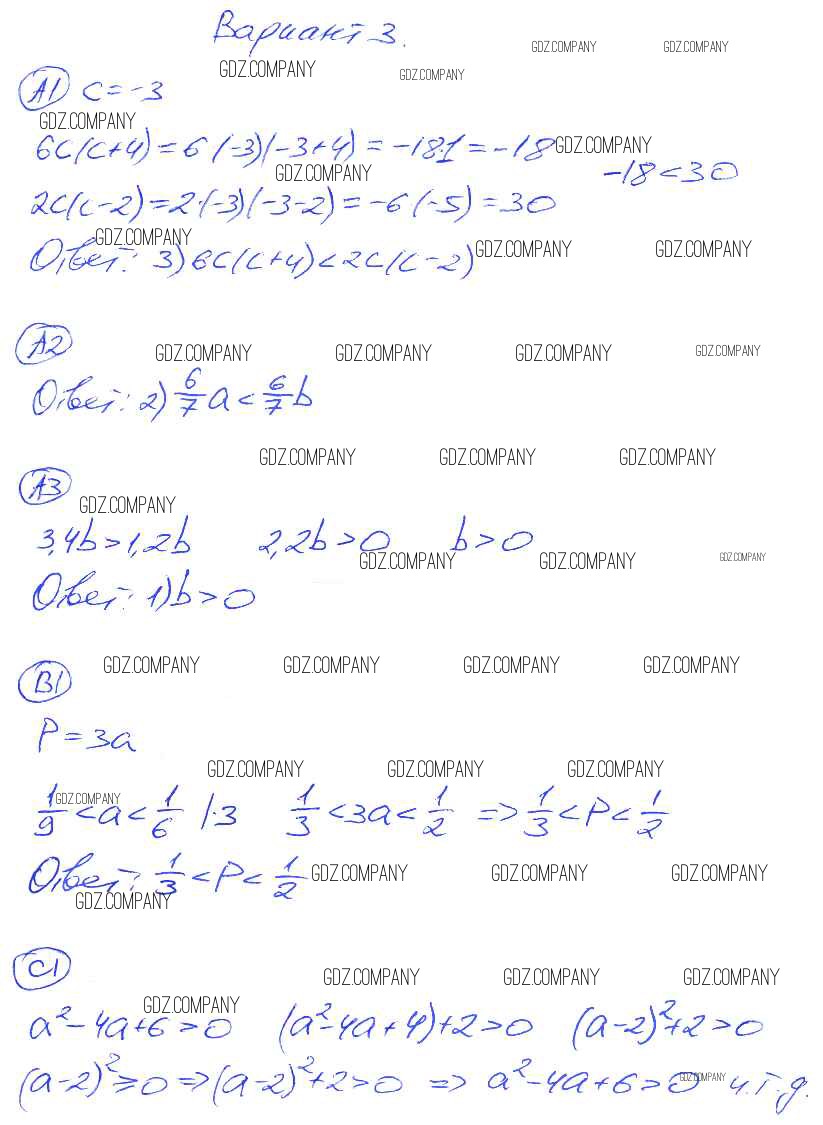 Вариант 3.
GDZ.COMPANY GDZ.COMPANY
GDZ.COMPANY GDZ.COMPANY
A1 c = -3
GDZ.COMPANY
6c(c+4) = 6·(-3)(-3+4) = -18·1 = -18 GDZ.COMPANY
GDZ.COMPANY -18 < 30
2c(c-2) = 2·(-3)(-3-2) = -6·(-5) = 30
GDZ.COMPANY GDZ.COMPANY GDZ.COMPANY
Ответ: 3) 6c(c+4) < 2c(c-2)
A2
GDZ.COMPANY GDZ.COMPANY GDZ.COMPANY GDZ.COMPANY
Ответ: 2) 6/7 a < 6/7 b
GDZ.COMPANY GDZ.COMPANY GDZ.COMPANY
A3
GDZ.COMPANY
3,4b > 1,2b 2,2b > 0 b > 0
GDZ.COMPANY GDZ.COMPANY GDZ.COMPANY
Ответ: 1) b > 0
GDZ.COMPANY GDZ.COMPANY GDZ.COMPANY GDZ.COMPANY
B1
P = 3a
GDZ.COMPANY GDZ.COMPANY GDZ.COMPANY
GDZ.COMPANY
1/9 < a < 1/6 |·3 1/3 < 3a < 1/2 => 1/3 < P < 1/2
Ответ: 1/3 < P < 1/2 GDZ.COMPANY GDZ.COMPANY GDZ.COMPANY
GDZ.COMPANY
C1
GDZ.COMPANY GDZ.COMPANY GDZ.COMPANY
GDZ.COMPANY
a² - 4a + 6 > 0 (a² - 4a + 4) + 2 > 0 (a-2)² + 2 > 0
(a-2)² ≥ 0 => (a-2)² + 2 > 0 => a² - 4a + 6 > 0 GDZ.COMPANY ч.т.д.